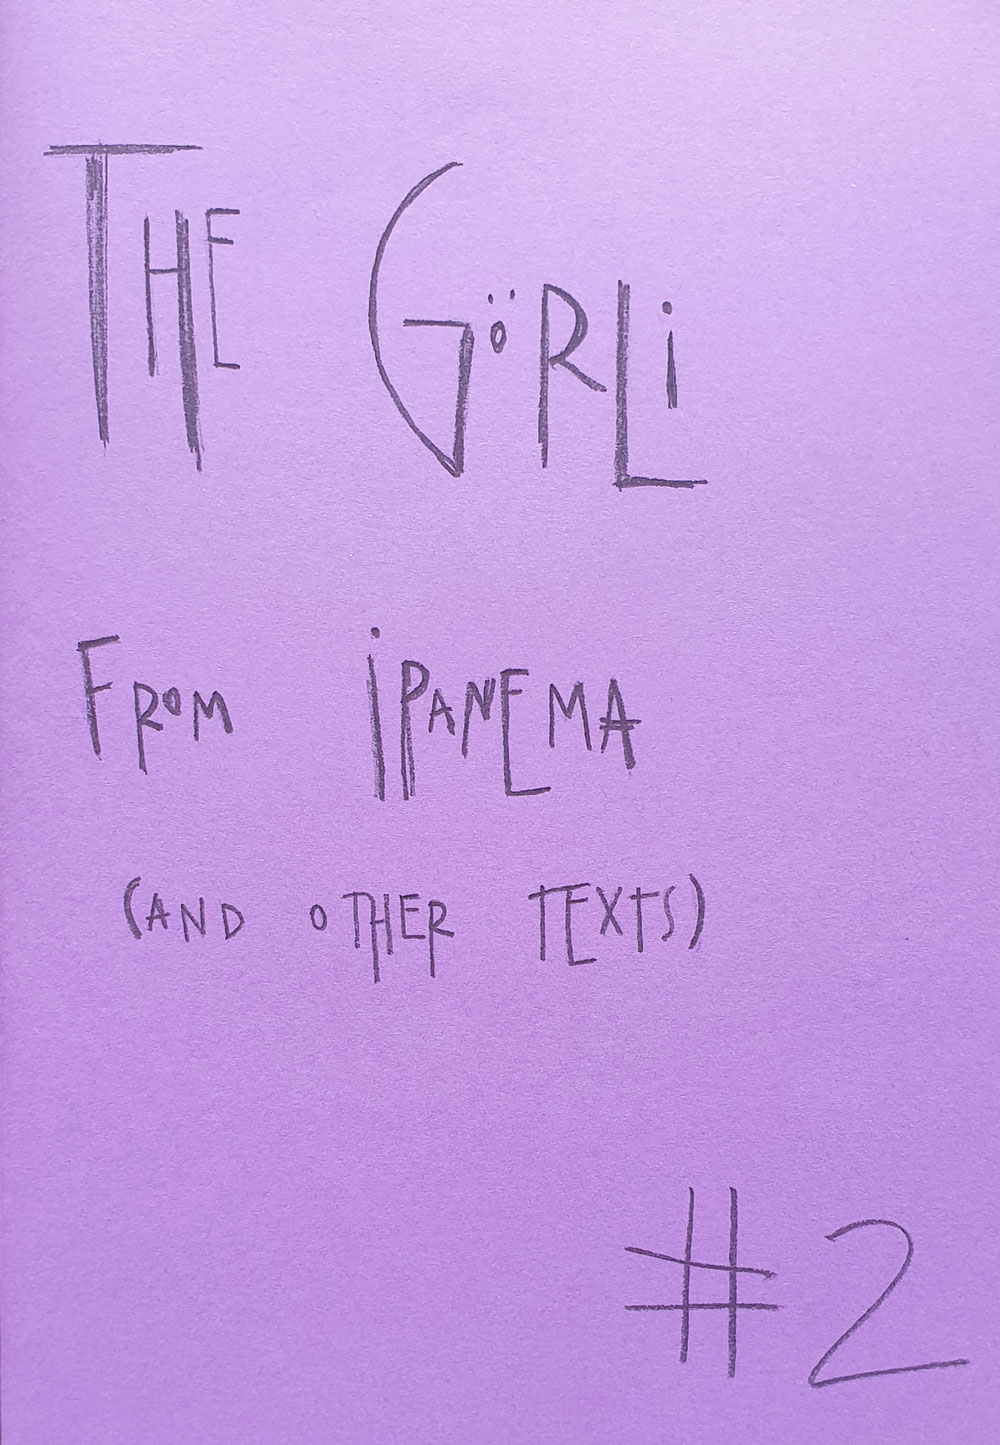 THE GöRLi
FROM iPANEMA
(AND OTHER TEXTS)
#2